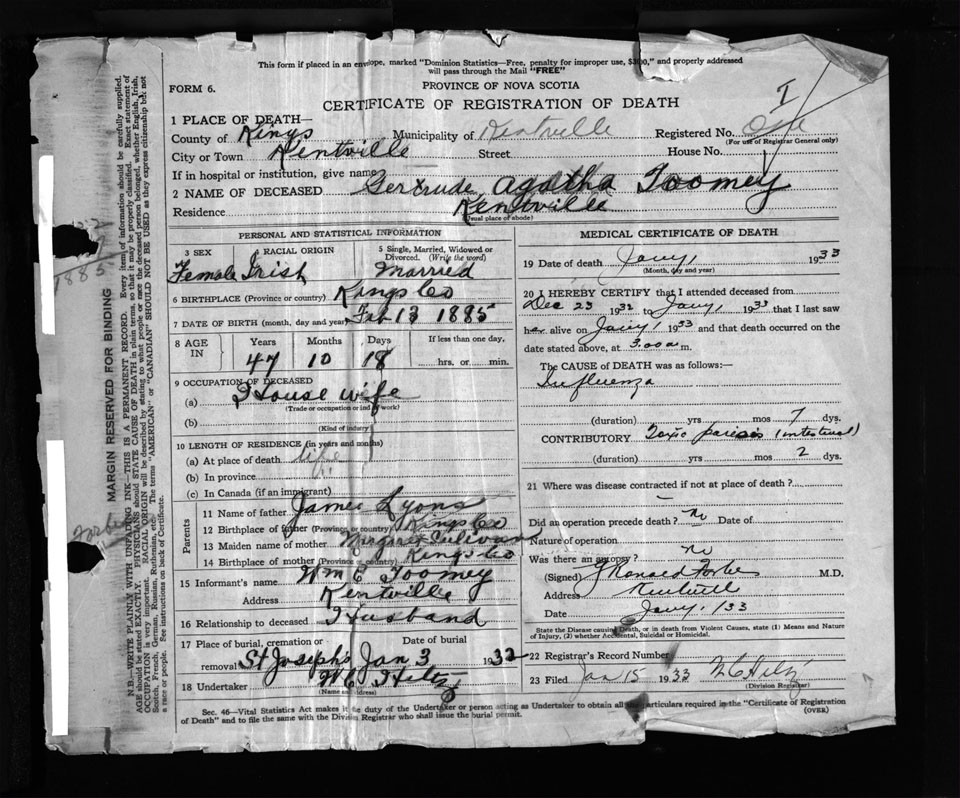 This form if placed in an envelope, marked "Dominion Statistics—Free, penalty for improper use, $300," and properly addressed
will pass through the Mail "FREE"
FORM 6.
PROVINCE OF NOVA SCOTIA
CERTIFICATE OF REGISTRATION OF DEATH
I
1 PLACE OF DEATH—
County of Kings Municipality of Kentville Registered No.
(For use of Registrar General only)
City or Town Kentville Street House No.
If in hospital or institution, give name
2 NAME OF DECEASED Gertrude Agatha Toomey
Residence Kentville
(Usual place of abode)
PERSONAL AND STATISTICAL INFORMATION
3 SEX 4 RACIAL ORIGIN 5 Single, Married, Widowed or Divorced. (Write the word)
Female Irish Married
6 BIRTHPLACE (Province or country) Kings Co
7 DATE OF BIRTH (month, day and year) Feb 13 1885
8 AGE IN Years Months Days If less than one day,
47 10 18 hrs. or min.
9 OCCUPATION OF DECEASED
(a) House wife
(Trade or occupation or kind of work)
(b)
(Kind of industry)
10 LENGTH OF RESIDENCE (in years and months)
(a) At place of death life
(b) In province "
(c) In Canada (if an immigrant)
Parents
11 Name of father James Lyons
12 Birthplace of father (Province or country) Kings Co
13 Maiden name of mother Margaret Sulivan
14 Birthplace of mother (Province or country) Kings Co
15 Informant's name Wm E Toomey
Address Kentville
16 Relationship to deceased Husband
17 Place of burial, cremation or removal Date of burial
St Josephs Jan 3 1932
18 Undertaker W C Hiltz
(Name and address)
MEDICAL CERTIFICATE OF DEATH
19 Date of death Jany 1, 1933
(Month, day and year)
20 I HEREBY CERTIFY that I attended deceased from
Dec 23 1932 to Jany 1 1933 that I last saw
her alive on Jany 1 1933 and that death occurred on the
date stated above, at 3.00 a m.
The CAUSE OF DEATH was as follows:—
Influenza
(duration) yrs mos 7 dys.
CONTRIBUTORY Toxic paresis (intestinal)
(duration) yrs mos 2 dys.
21 Where was disease contracted if not at place of death?
Did an operation precede death? no Date of
Nature of operation
Was there an autopsy? no
(Signed) J Ronald Forbes M.D.
Address Kentville
Date Jany 1/33
State the Disease causing Death, or in death from Violent Causes, state (1) Means and Nature
of Injury, (2) whether Accidental, Suicidal or Homicidal.
22 Registrar's Record Number
23 Filed Jan 15 1933 W C Hiltz
(Division Registrar)
Sec. 46—Vital Statistics Act makes it the duty of the Undertaker or person acting as Undertaker to obtain all the particulars required in the "Certificate of Registration
of Death" and to file the same with the Division Registrar who shall issue the burial permit. (OVER)
MARGIN RESERVED FOR BINDING
N.B.—WRITE PLAINLY WITH UNFADING INK—THIS IS A PERMANENT RECORD. Every item of information should be carefully supplied.
AGE should be stated EXACTLY. PHYSICIANS should STATE CAUSE OF DEATH in plain terms, so that it may be properly classified. Exact statement of
OCCUPATION is very important. RACIAL ORIGIN will be described by stating to what people or race the deceased person belonged, whether English, Irish,
Scotch, French, German, Russian, Ruthenian, etc. The terms "AMERICAN" or "CANADIAN" SHOULD NOT BE USED as they express citizenship but not
a race or people. See instructions on back of Certificate.
1885
Forbes